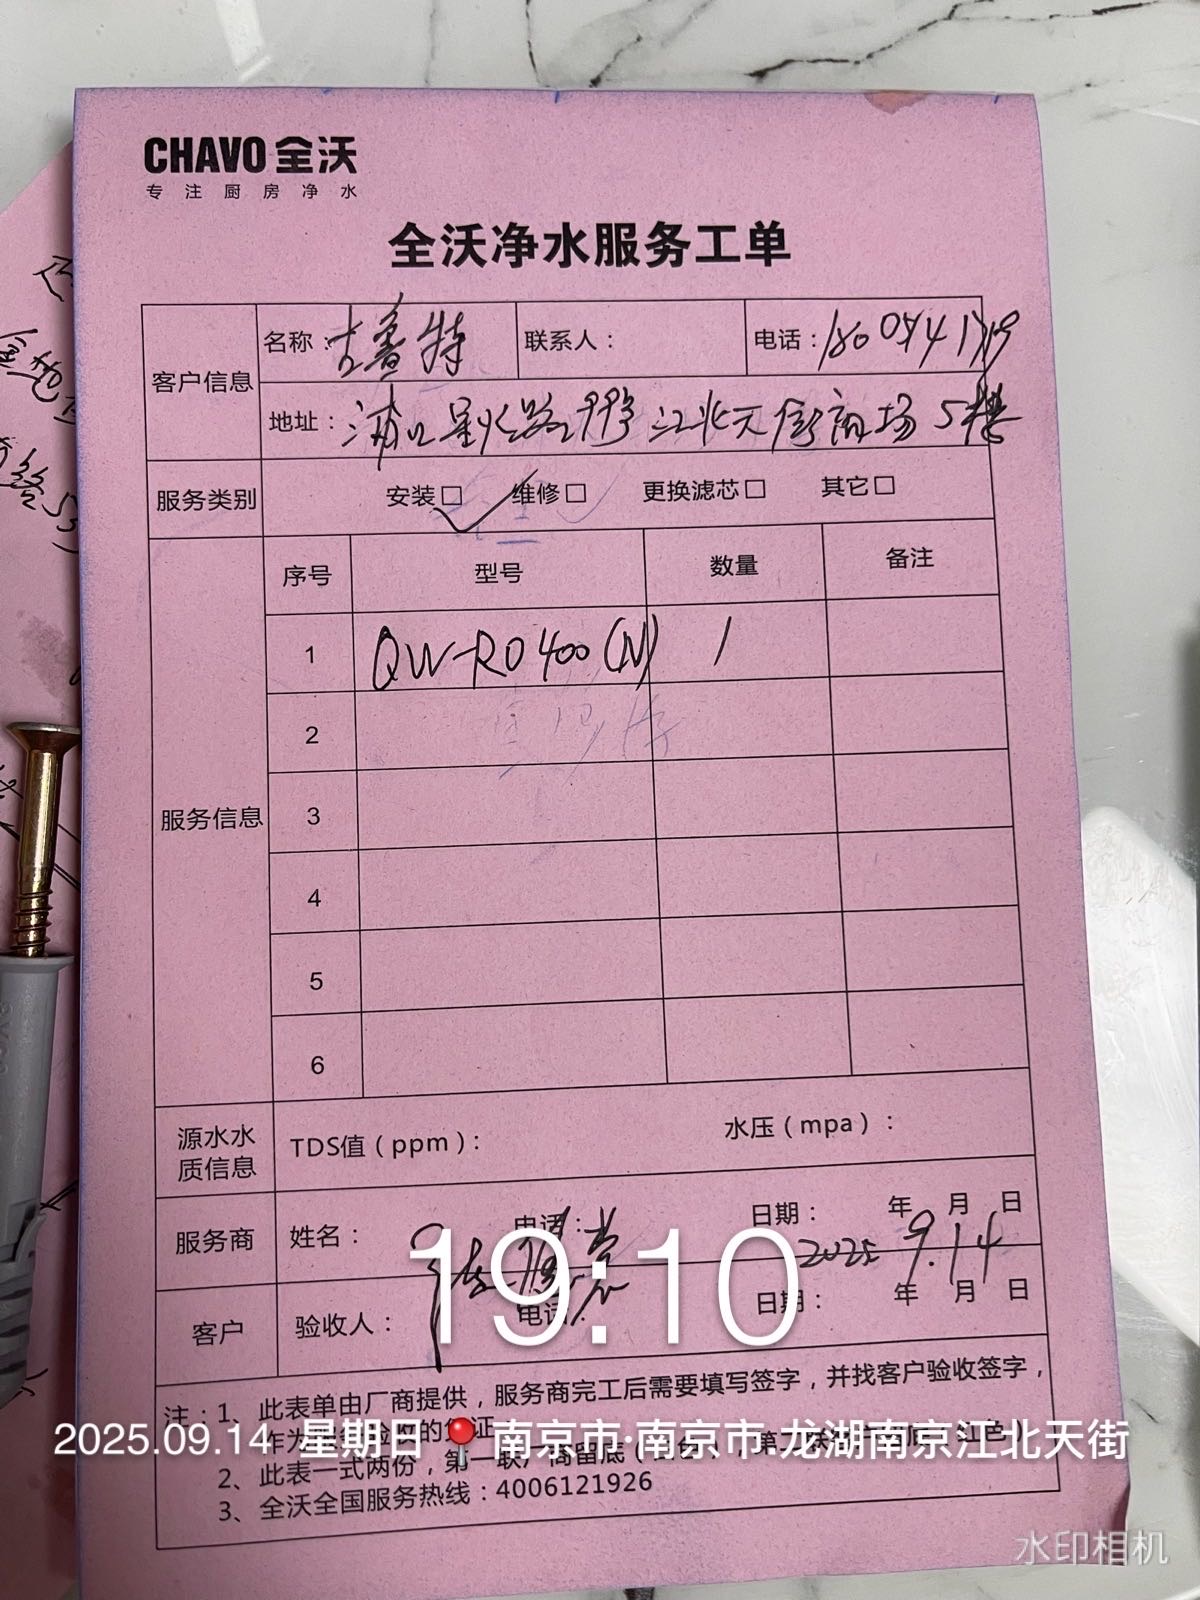 CHAVO 全沃
专注厨房净水
全沃净水服务工单
客户信息 名称：古鲁特 联系人： 电话：
地址：浦口 路99号江北天街商场5楼
服务类别 安装□ 维修□ 更换滤芯□ 其它□
服务信息 序号 型号 数量 备注
1 QW-RO400(N) 1
2
3
4
5
6
源水水质信息 TDS值（ppm）： 水压（mpa）：
服务商 姓名： 电话： 日期： 年 月 日
2025 9.14
客户 验收人： 电话： 日期： 年 月 日
19:10
注：1、此表单由厂商提供，服务商完工后需要填写签字，并找客户验收签字，
作为 验收的凭证
2025.09.14 星期日 南京市·南京市·龙湖南京江北天街
2、此表一式两份，第一联厂商留底
3、全沃全国服务热线：4006121926
水印相机